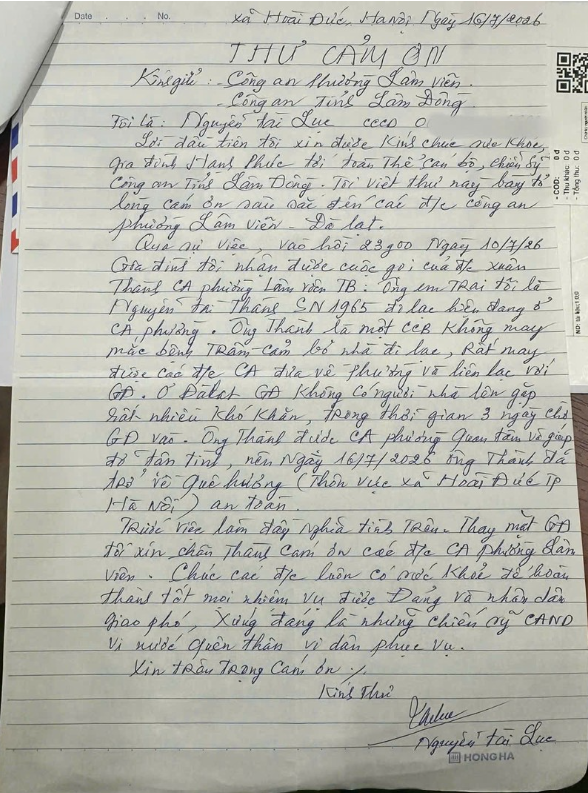 Date . . . . . No.
xã Hoài Đức, Hanội Ngày 16/7/2026
THƯ CẢM ƠN
Kính gửi: - Công an Phường Lâm Viên.
- Công an Tỉnh Lâm Đồng
Tôi là: Nguyễn tài Lục CCCD 0
Lời đầu tiên tôi xin được kính chúc sức khỏe,
gia đình Hạnh Phúc tới toàn Thể cán bộ, chiến sỹ
Công an Tỉnh Lâm Đồng. Tôi viết thư này bày tỏ
lòng cảm ơn sâu sắc đến các đ/c công an
phường Lâm viên - Đà lạt.
Qua sự việc, vào hồi 23g00 Ngày 10/7/26
Gia đình tôi nhận được cuộc gọi của đ/c xuân
Thành CA phường Lâm viên TB. Ông em TRai tôi là
Nguyễn tài Thành SN 1965 đi lạc hiện đang ở
CA phường. Ông Thành là một CCB không may
mắc bệnh TRầm cảm bỏ nhà đi lạc, Rất may
được các đ/c CA đưa về phường và liên lạc với
GĐ. Ở Đàlạt GĐ không có người nhà lên gặp
rất nhiều khó khăn, trong thời gian 3 ngày chờ
GĐ vào. Ông Thành được CA phường quan tâm và giúp
đỡ tận tình, nên Ngày 16/7/2026 ông Thành đã
trở về quê hương (Thôn vực xã Hoài Đức TP
Hà Nội) an toàn.
Trước việc làm đầy nghĩa tình trên. Thay mặt GĐ
tôi xin chân Thành cảm ơn các đ/c CA phường Lâm
viên. Chúc các đ/c luôn có sức khỏe để hoàn
thành tốt mọi nhiệm vụ được Đảng và nhân dân
giao phó, xứng đáng là những chiến sỹ CAND
vì nước quên thân vì dân phục vụ.
Xin trân trọng cảm ơn ./.
Kính Thư
Nguyễn tài Lục
HONG HA
- COD: 0 đ
- Thu khác: 0 đ
- Tổng thu: 0 đ